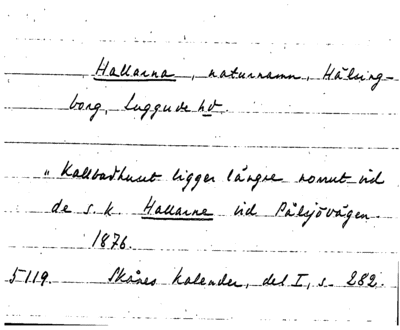 Hallarna, naturnamn, Hälsing-
borg, Luggude hd.
"Kallbadhuset ligger längre norrut vid
de s. k. Hallarne vid Pålsjövägen.
1876.
5119. Skånes Kalender, del I, s. 282.